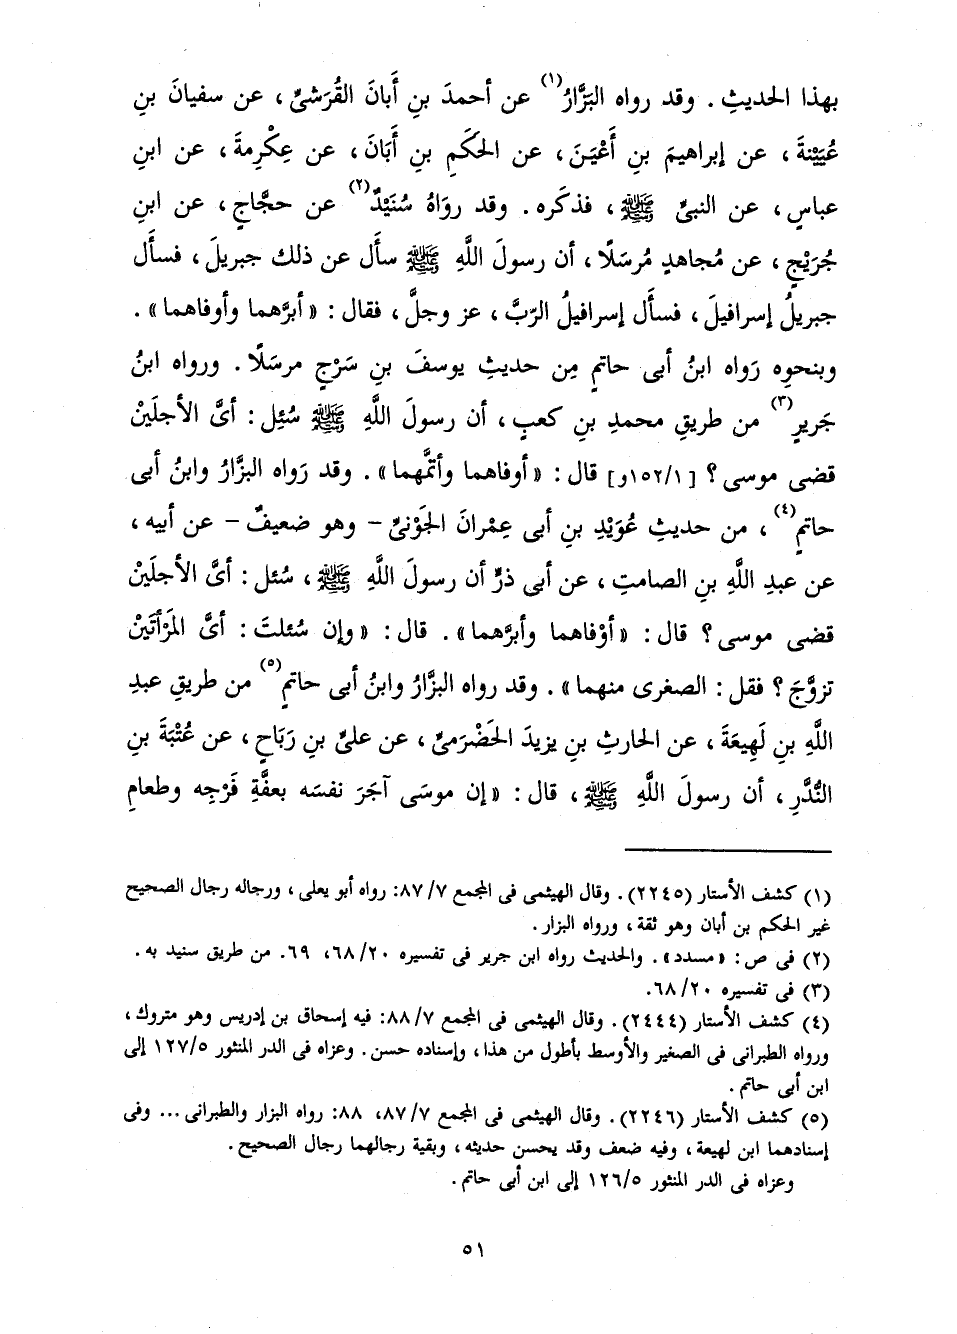 بهذا الحديثِ. وقد رواه البَزَّارُ(١) عن أحمدَ بنِ أَبانَ القُرَشيِّ، عن سفيانَ بنِ
عُيَيْنةَ، عن إبراهيمَ بنِ أَعْيَنَ، عن الحَكَمِ بنِ أَبَانَ، عن عِكْرِمةَ، عن ابنِ
عباسٍ، عن النبيِّ ﷺ، فذكَره. وقد روَاهُ سُنَيْدٌ(٢) عن حجَّاجٍ، عن ابنِ
جُرَيْجٍ، عن مُجاهدٍ مُرسَلًا، أن رسولَ اللَّهِ ﷺ سأَل عن ذلك جبريلَ، فسأَل
جبريلُ إسرافيلَ، فسأَل إسرافيلُ الرّبَّ، عز وجلَّ، فقال: «أبرَّهما وأوفاهما».
وبنحوِه رَواه ابنُ أبى حاتمٍ مِن حديثِ يوسفَ بنِ سَرْجٍ مرسَلًا. ورواه ابنُ
جَريرٍ(٣) من طريقِ محمدِ بنِ كعبٍ، أن رسولَ اللَّهِ ﷺ سُئِل: أىَّ الأجلَيْنْ
قضى موسى؟ [١٥٢/١و] قال: «أوفاهما وأتمَّهما». وقد رَواه البزَّارُ وابنُ أبى
حاتمٍ(٤)، من حديثِ عُوَيْدِ بنِ أبى عِمْرانَ الجَوْنيِّ - وهو ضعيفٌ - عن أبيه،
عن عبدِ اللَّهِ بنِ الصامتِ، عن أبى ذرٍّ أن رسولَ اللَّهِ ﷺ، سُئل: أىَّ الأجلَيْنْ
قضى موسى؟ قال: «أوْفاهما وأبرَّهما». قال: «وإن سُئلتَ: أىَّ المَرْأَتَيْنْ
تزوَّجَ؟ فقل: الصغرى منهما». وقد رواه البزَّارُ وابنُ أبى حاتمٍ(٥) من طريقِ عبدِ
اللَّهِ بنِ لَهِيعَةَ، عن الحارثِ بنِ يزيدَ الحَضْرَميِّ، عن عليِّ بنِ رَبَاحٍ، عن عُتْبَةَ بنِ
النُّدَّرِ، أن رسولَ اللَّهِ ﷺ، قال: «إن موسَى آجَرَ نفسَه بعفَّةِ فَرْجِه وطعامِ
(١) كشف الأستار (٢٢٤٥). وقال الهيثمى فى المجمع ٨٧/٧: رواه أبو يعلى، ورجاله رجال الصحيح
غير الحكم بن أبان وهو ثقة، ورواه البزار.
(٢) فى ص: «مسدد». والحديث رواه ابن جرير فى تفسيره ٦٨/٢٠، ٦٩. من طريق سنيد به.
(٣) فى تفسيره ٦٨/٢٠.
(٤) كشف الأستار (٢٤٤٤). وقال الهيثمى فى المجمع ٨٨/٧: فيه إسحاق بن إدريس وهو متروك،
ورواه الطبرانى فى الصغير والأوسط بأطول من هذا، وإسناده حسن. وعزاه فى الدر المنثور ١٢٧/٥ إلى
ابن أبى حاتم.
(٥) كشف الأستار (٢٢٤٦). وقال الهيثمى فى المجمع ٨٧/٧، ٨٨: رواه البزار والطبرانى... وفى
إسنادهما ابن لهيعة، وفيه ضعف وقد يحسن حديثه، وبقية رجالهما رجال الصحيح.
وعزاه فى الدر المنثور ١٢٦/٥ إلى ابن أبى حاتم.
٥١